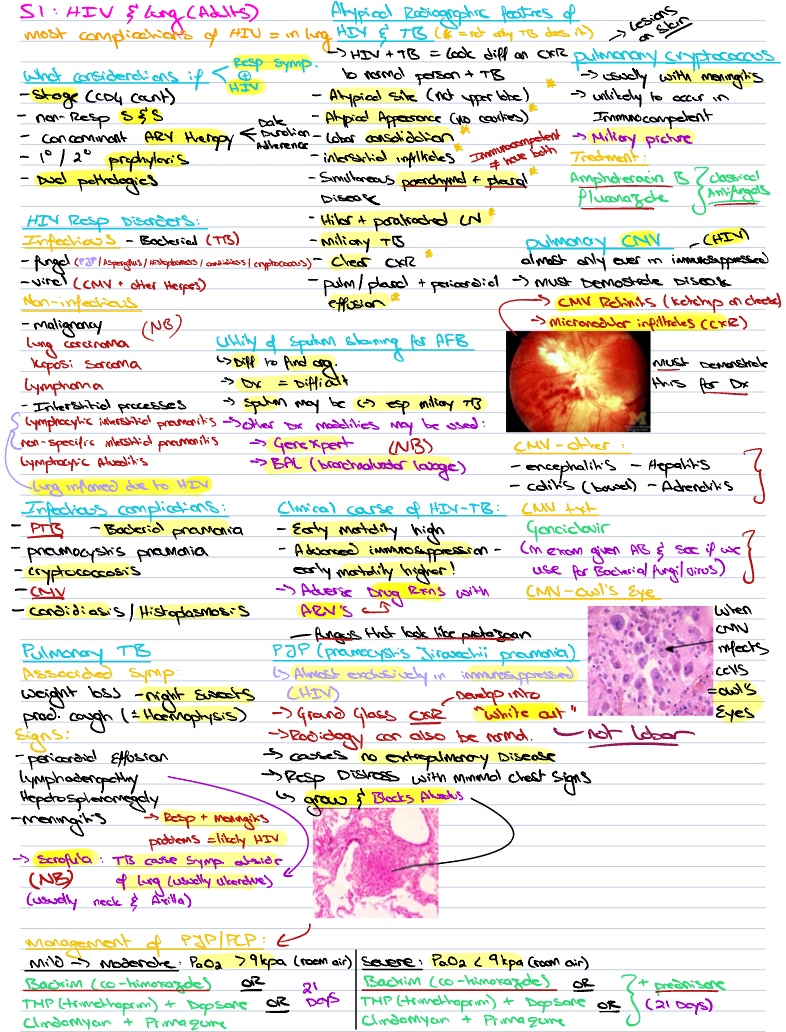 S1: HIV & Lung (Adults)
most complications of HIV = in lung
What considerations if
Resp symp.
+
HIV
- Stage (CD4 count)
- non-Resp S&S
- Concominant ARV therapy
Date
Duration
Adherence
- 1° / 2° prophylaxis
- Dual pathologies
HIV Resp Disorders:
Infectious - Bacterial (TB)
- fungal (PJP/Aspergillus/Histoplasmosis/candidiasis/cryptococcus)
- viral (CMV + other Herpes)
Non-infectious
- malignancy (NB)
Lung carcinoma
Kaposi sarcoma
Lymphoma
- Interstitial processes
Lymphocytic interstitial pneumonitis
non-specific interstitial pneumonitis
Lymphocytic Alveolitis
Lung inflamed due to HIV
Infectious complications:
- PTB - Bacterial pneumonia
- pneumocystis pneumonia
- cryptococcosis
- CMV
- candidiasis / Histoplasmosis
Pulmonary TB
Associated symp:
weight loss - night sweats
prod. cough (± Haemoptysis)
Signs:
- pericardial Effusion
Lymphadenopathy
Hepatosplenomegaly
- meningitis
→ Resp + meningitis
problems = likely HIV
→ Scrofula: TB cause symp outside
(NB) of lung (usually ulcerative)
(usually neck & Axilla)
Atypical Radiographic features of
HIV & TB (* = not only TB does it)
→ HIV + TB = Look diff on CXR
to normal person + TB
- Atypical Site (not upper lobe) *
- Atypical Appearance (no cavities) *
- Lobar consolidation *
- interstitial infiltrates *
Immunocompetent
≠ have both
- Simultaneous parenchymal + pleural *
Disease
- Hilar + paratracheal LN *
- Miliary TB
- Clear CXR *
- pulm / pleural + pericardial
effusion *
Utility of sputum staining for AFB
↳ Diff to find org.
→ Dx = Difficult
→ sputum may be (-) esp miliary TB
→ other Dx modalities may be used:
→ Genexpert (NB)
→ BAL (bronchoalveolar lavage)
Clinical cause of HIV-TB:
- Early mortality high
- Advanced immunosuppression -
early mortality higher!
→ Adverse Drug Rxns with
ARV's
fungus that look like protozoan
PJP (pneumocystis Jirovechii pneumonia)
↳ Almost exclusively in immunosuppressed
(HIV)
→ Ground Glass CXR
Develop into
"white out"
→ Radiology can also be normal.
not lobar
→ causes no extrapulmonary Disease
→ Resp Distress with minimal chest signs
↳ grow & Blocks Alveolus
Lesions
on skin
pulmonary cryptococcus
→ usually with meningitis
→ unlikely to occur in
Immunocompetent
→ Miliary picture
Treatment:
Amphoteracin B
Fluconazole
classical
Antifungals
pulmonary CMV (HIV)
almost only ever in immunosuppressed
→ must Demostrate Disease
→ CMV Retinitis (ketchup on cheese)
→ micronodular infiltrates (CXR)
must Demonstrate
this for Dx
CMV - other:
- encephalitis - Hepatitis
- colitis (bowel) - Adrenalitis
CMV txt
Ganciclovir
(in exam given AB & see if we
use for Bacteria/fungi/virus)
CMV - owl's Eye
When
CMV
infects
cells
= owl's
Eyes
Management of PJP/PCP:
Mild → Moderate: PaO2 > 9kpa (room air)
Bactrim (co-trimoxazole) OR
TMP (trimethoprim) + Dapsone OR
Clindamycin + Primaquine
21
Days
Severe: PaO2 < 9kpa (room air)
Bactrim (co-trimoxazole) OR
TMP (trimethoprim) + Dapsone OR
Clindamycin + Primaquine
+ prednisone
(21 Days)